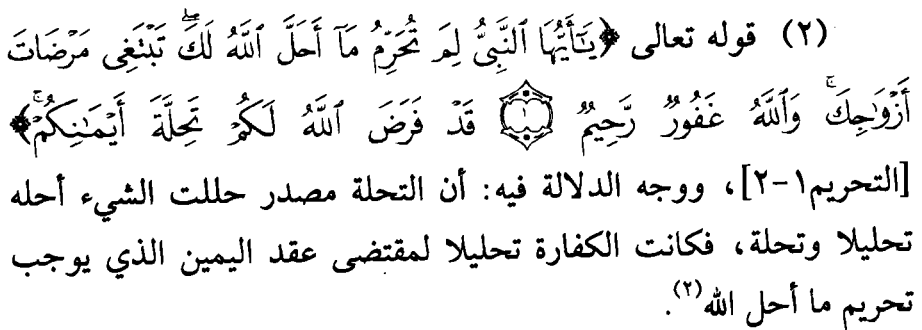 (٢) قوله تعالى ﴿يَٰٓأَيُّهَا ٱلنَّبِىُّ لِمَ تُحَرِّمُ مَآ أَحَلَّ ٱللَّهُ لَكَۖ تَبْتَغِى مَرْضَاتَ
أَزْوَٰجِكَۚ وَٱللَّهُ غَفُورٌ رَّحِيمٌ ۝١ قَدْ فَرَضَ ٱللَّهُ لَكُمْ تَحِلَّةَ أَيْمَٰنِكُمْۚ﴾
[التحريم١-٢]، ووجه الدلالة فيه: أن التحلة مصدر حللت الشيء أحله
تحليلا وتحلة، فكانت الكفارة تحليلا لمقتضى عقد اليمين الذي يوجب
تحريم ما أحل الله(٢).